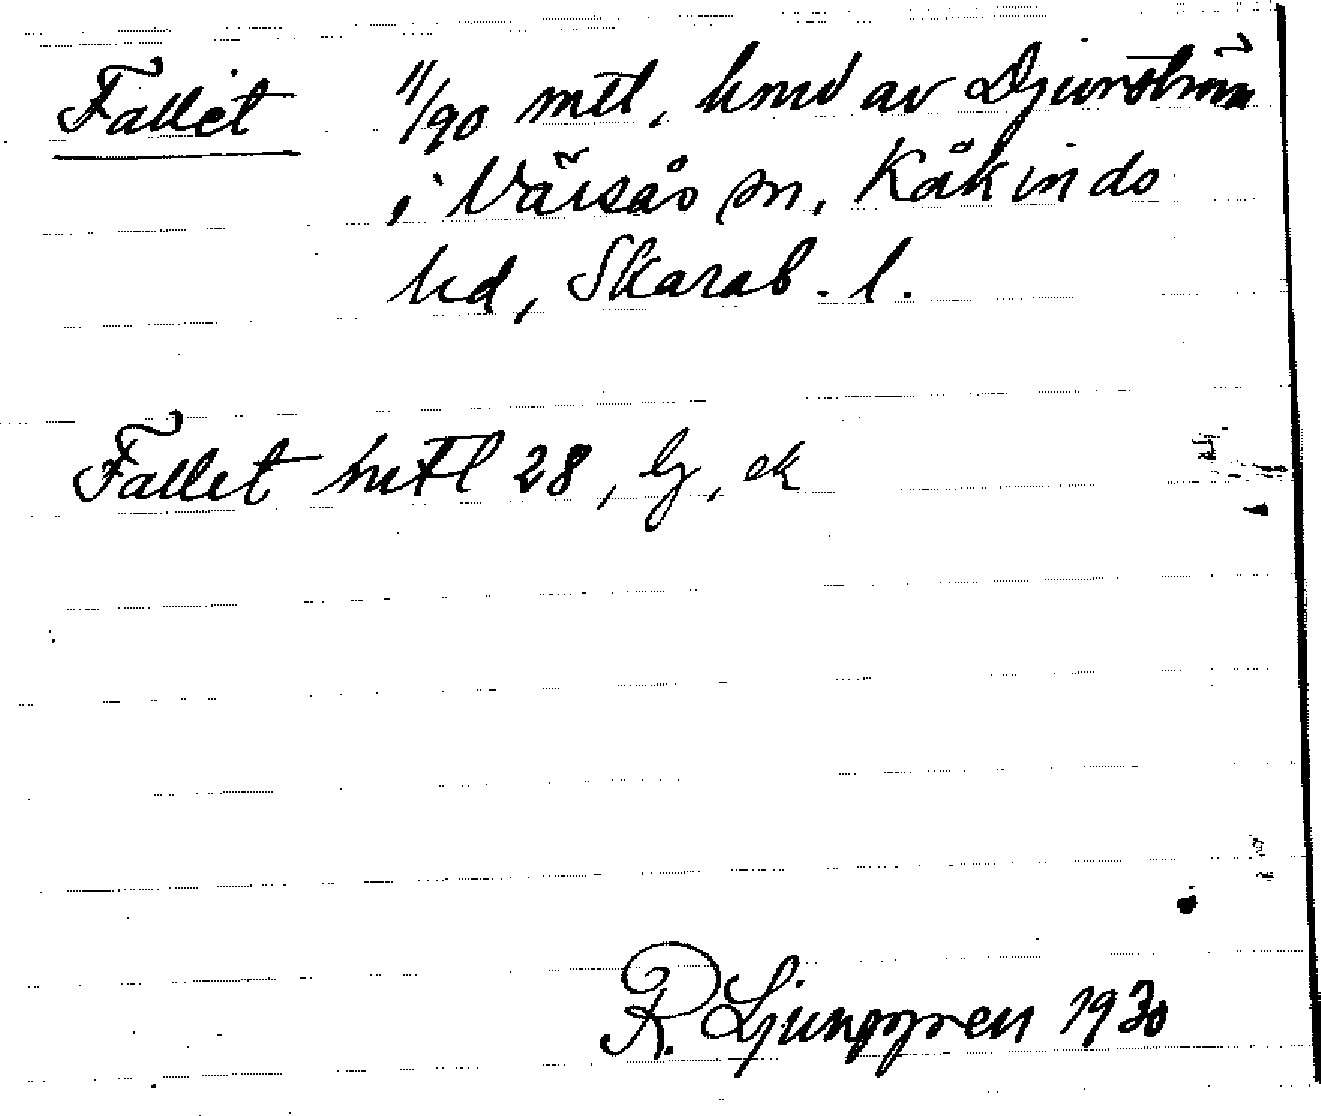 Fallet 11/90 mtl, hmd av Djurström
i Värsås sn, Kåkinds
hd, Skarab. l.
Fallet mtl 28, lj, ek
R. Ljunggren 1930